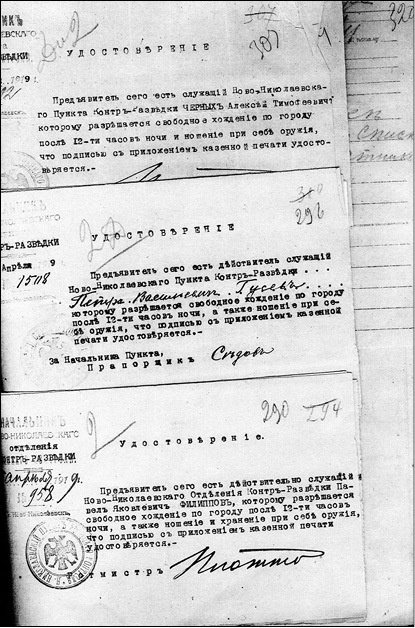 307
307
УДОСТОВѢРЕНІЕ
Предъявитель сего есть служащій Ново-Николаевска-
го Пункта Контр-Развѣдки ЧЕРНЫХ Алексѣй Тимофеевич
которому разрѣшается свободное хожденіе по городу
послѣ 12-ти часовъ ночи и ношеніе при себѣ оружія,
что подписью с приложеніем казенной печати удосто-
вѣряется.-
ТРЪ-РАЗВѢДКИ
Апрѣля 9
1508
296
УДОСТОВѢРЕНІЕ
Предъявитель сего есть дѣйствител служащий
Ново-Николаевскаго Пункта Контр-Развѣдки . . .
Петръ Васильевич Гусевъ . . .
которому разрѣшается свободное хожденіе по городу
послѣ 12-ти часовъ ночи, а также ношеніе при се-
бѣ оружія, что подписью с приложеніем казенной
печати удостовѣряется.-
За Начальника Пункта,
Прапорщик
НАЧАЛЬНИКЪ
ОВО-НИКОЛАЕВСКАГО
ОТДѢЛЕНІЯ
НТРЪ-РАЗВѢДКИ
апрѣля 1919 г.
958
290 294
Удостовѣреніе.
Предъявитель сего есть дѣйствительно служащій в
Ново-Николаевскаго Отдѣленія Контр-Развѣдки Па-
вел Яковлевич ФИЛИППОВЪ, которому разрѣшается
свободное хожденіе по городу послѣ 12-ти часовъ
ночи, а также ношеніе и храненіе при себѣ оружія,
что подписью с приложеніем казенной печати
удостовѣряется.-
тмистръ